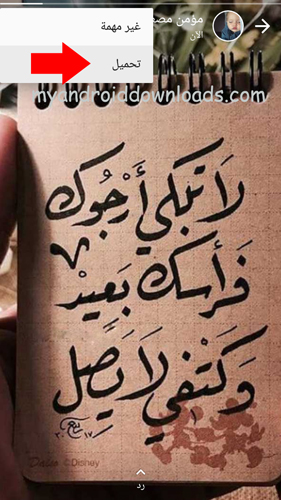 غير مهمة
تحميل
مؤمن مصع
الآن
myandroiddownloads.com
لَا تَبْكِي أَرْجُوكِ
فَرَأْسُكِ بَعِيدٌ
وَكَتِفِي لَا يَصِلُ
ربيع
٢٠١٧
Disney ©Disney
رد